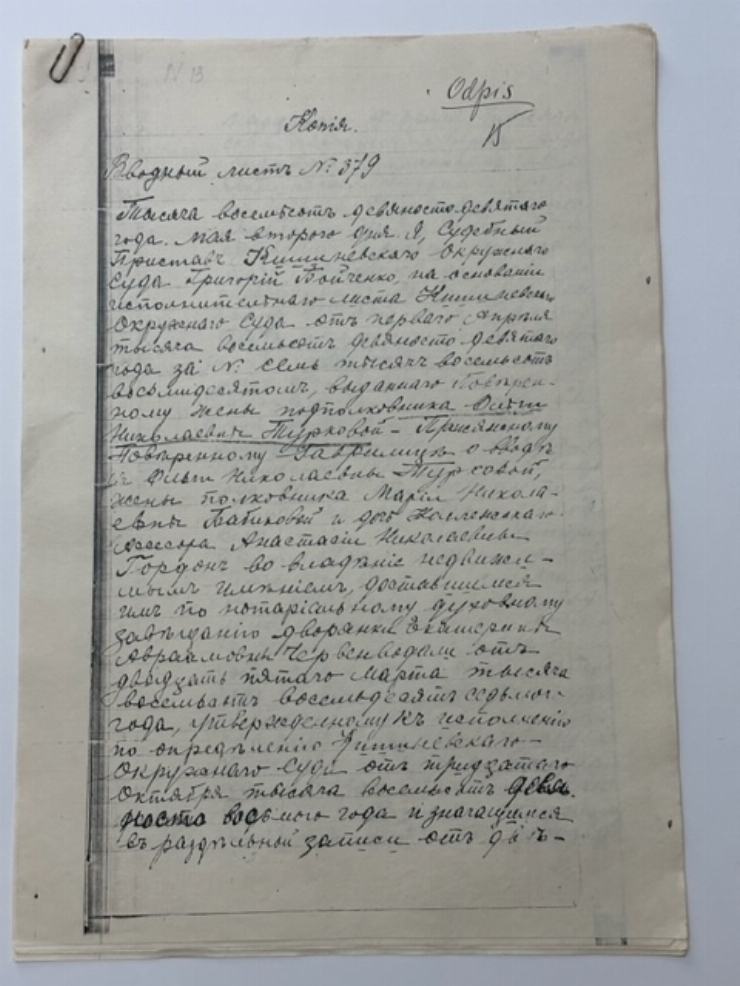 N 13
Odpis
15
Копія.
Вводный листъ № 379
Тысяча восемьсотъ девяносто девятаго
года. Мая второго дня. Я, Судебный
Приставъ Кишиневскаго Окружнаго
Суда Григорій Бойченко, на основаніи
исполнительнаго листа Кишиневскаго
Окружнаго Суда отъ перваго Апрѣля
тысяча восемьсотъ девяносто девятаго
года за № семь тысячъ восемьсотъ
восьмидесятомъ, выданнаго Повѣрен-
ному жены подполковника Ольги
Николаевны Турковой – Присяжному
Повѣренному Гаврилицъ о вводѣ
Ольги Николаевны Турковой,
жены полковника Маріи Никола-
евны Бабиковой и Коллежскаго
Ассесора Анастасіи Николаевны
Гордонъ во владѣніе недвижи-
мымъ имѣніемъ, доставшимся
имъ по нотаріальному духовному
завѣщанію дворянки Екатерины
Авраамовны Червенводали отъ
двадцать пятаго Марта тысяча
восемьсотъ восемьдесятъ седьмого
года, утвержденному къ исполненію
по опредѣленію Кишиневскаго
Окружнаго Суда отъ тридцатаго
Октября тысяча восемьсотъ девя-
носто восьмого года и значащимся
въ раздѣльной записи отъ дѣ-